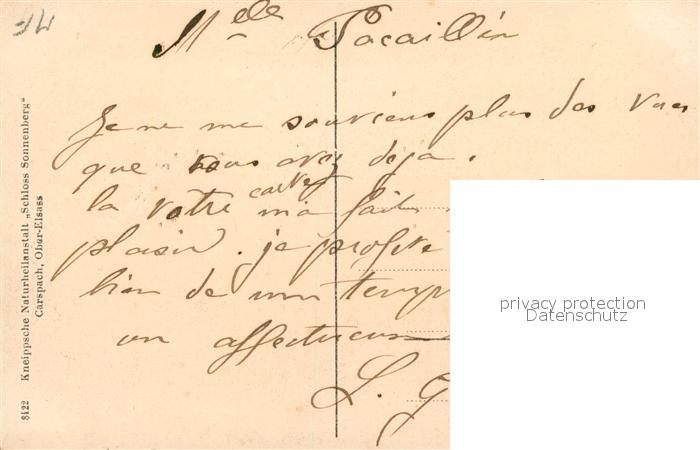 Melle Pacaillin
Je ne me souviens plus des vues
que vous avez deja.
la votre carte m'a fait
plaisir. je profite
bien de mon temps
un affectueux
L. G
privacy protection
Datenschutz
8422 Kneippsche Naturheilanstalt „Schloss Sonnenberg"
Carspach, Ober-Elsass